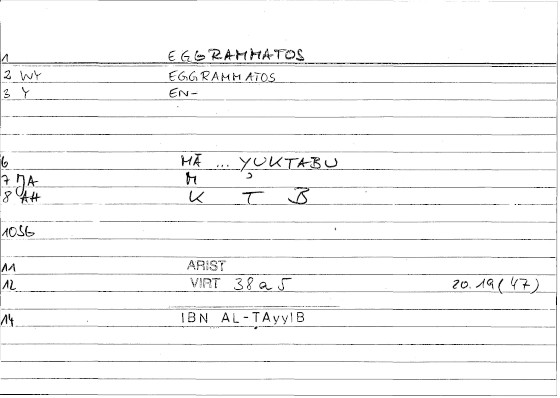 1 EGGRAMMATOS
2 WY EGGRAMMATOS
3 Y EN-
6 MĀ ... YUKTABU
7 JA M ʾ
8 AH K T B
10SG
11 ARIST
12 VIRT 38a5 20.19(47)
14 IBN AL-TAyyIB